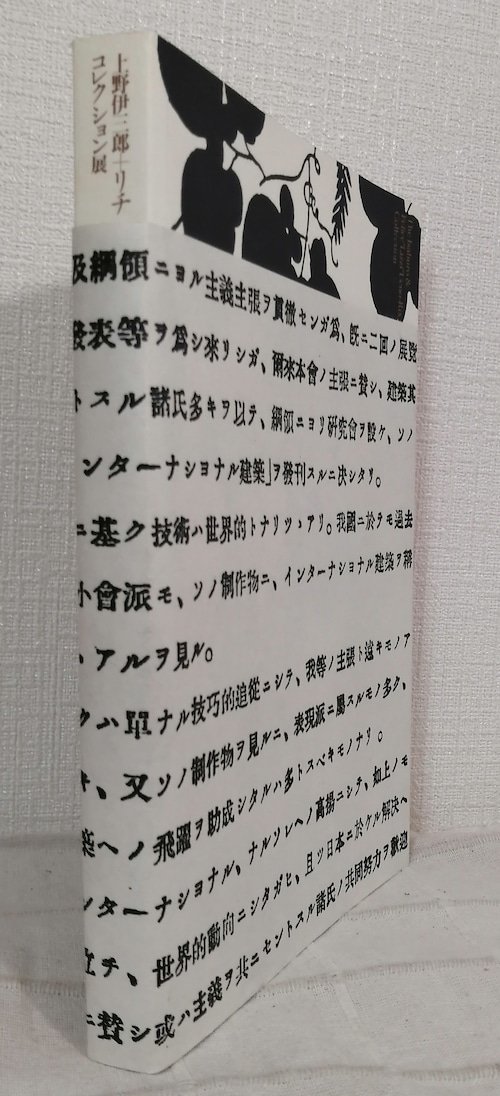 上野伊三郎＋リチ
コレクション展
及綱領ニヨル主義主張ヲ貫徹センガ爲、既ニ二回ノ展覽
發表等ヲ爲シ來リシガ、爾來本會ノ主張ニ賛シ、建築其
トスル諸氏多キヲ以テ、綱領ニヨリ硏究會ヲ設ケ、ソノ
ンターナショナル建築」ヲ發刊スルニ決シタリ。
ニ基ク技術ハ世界的トナリツヽアリ。我國ニ於テモ過去
小會派モ、ソノ制作物ニ、インターナショナル建築ヲ稱
、アルヲ見ル。
クハ單ナル技巧的追從ニシテ、我等ノ主張ト遠キモノア
キ、又ソノ制作物ヲ見ルニ、表現派ニ屬スルモノ多ク、
築ヘノ飛躍ヲ助成シタルハ多トスベキモノナリ。
ンターナショナル、ナルソレヘノ高揚ニシテ、如上ノモ
立チ、世界的動向ニシタガヒ、且ツ日本ニ於ケル解決ヘ
ニ賛シ或ハ主義ヲ共ニセントスル諸氏ノ共同努力ヲ歡迎